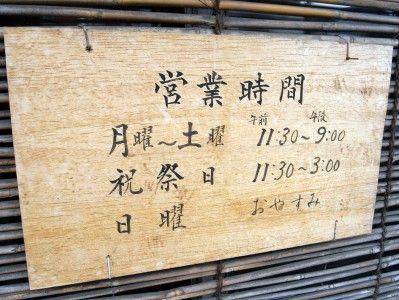 営業時間
午前 午後
月曜~土曜 11:30~9:00
祝祭日 11:30~3:00
日曜 おやすみ